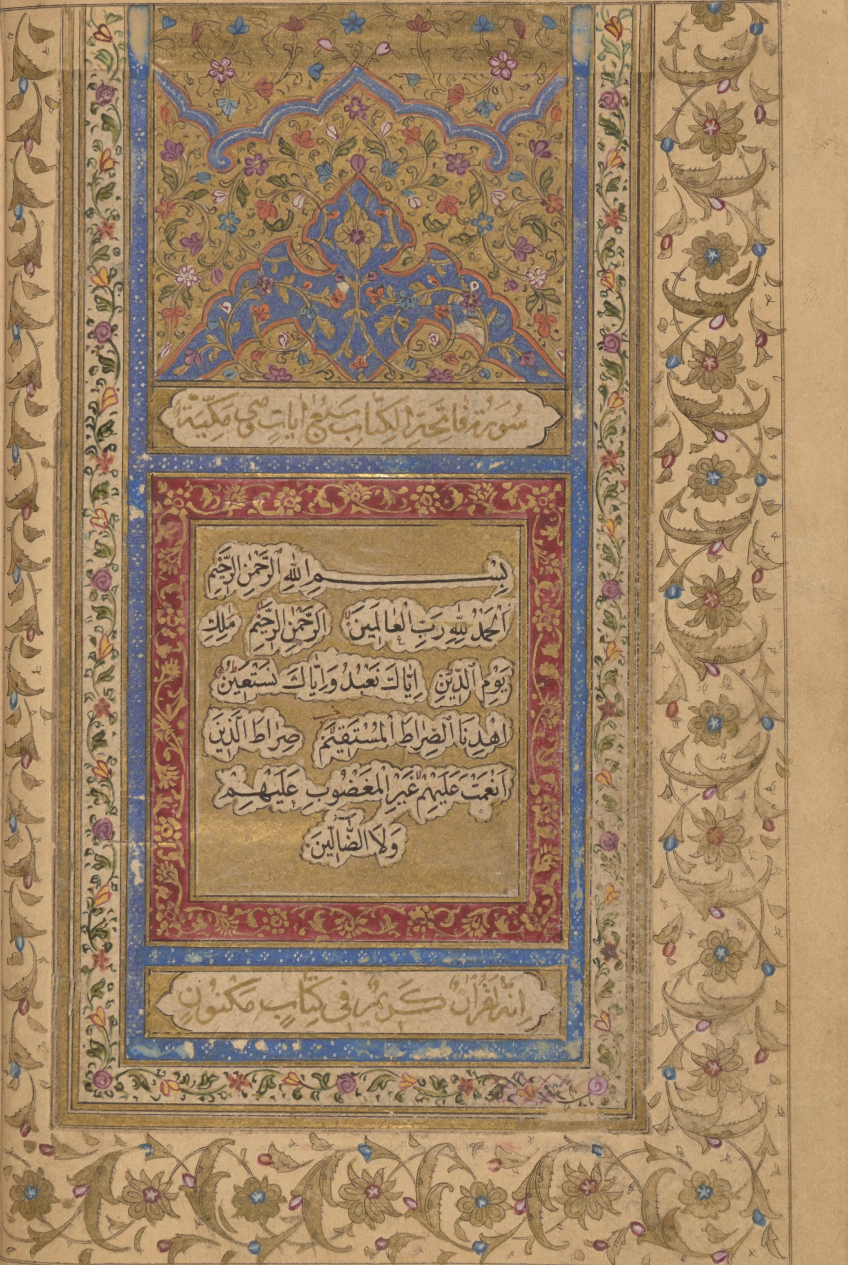 سُورَةُ فَاتِحَةِ الْكِتَابِ سَبْعُ اٰيَاتٍ وَهِيَ مَكِّيَّةٌ
بِسْمِ اللّٰهِ الرَّحْمٰنِ الرَّحِيْمِ
اَلْحَمْدُ لِلّٰهِ رَبِّ الْعَالَمِيْنَ الرَّحْمٰنِ الرَّحِيْمِ مٰلِكِ
يَوْمِ الدِّيْنِ اِيَّاكَ نَعْبُدُ وَاِيَّاكَ نَسْتَعِيْنُ
اِهْدِنَا الصِّرَاطَ الْمُسْتَقِيْمَ صِرَاطَ الَّذِيْنَ
اَنْعَمْتَ عَلَيْهِمْ غَيْرِ الْمَغْضُوْبِ عَلَيْهِمْ
وَلَا الضَّالِّيْنَ
اِنَّهُ لَقُرْاٰنٌ كَرِيْمٌ فِيْ كِتَابٍ مَكْنُوْنٍ